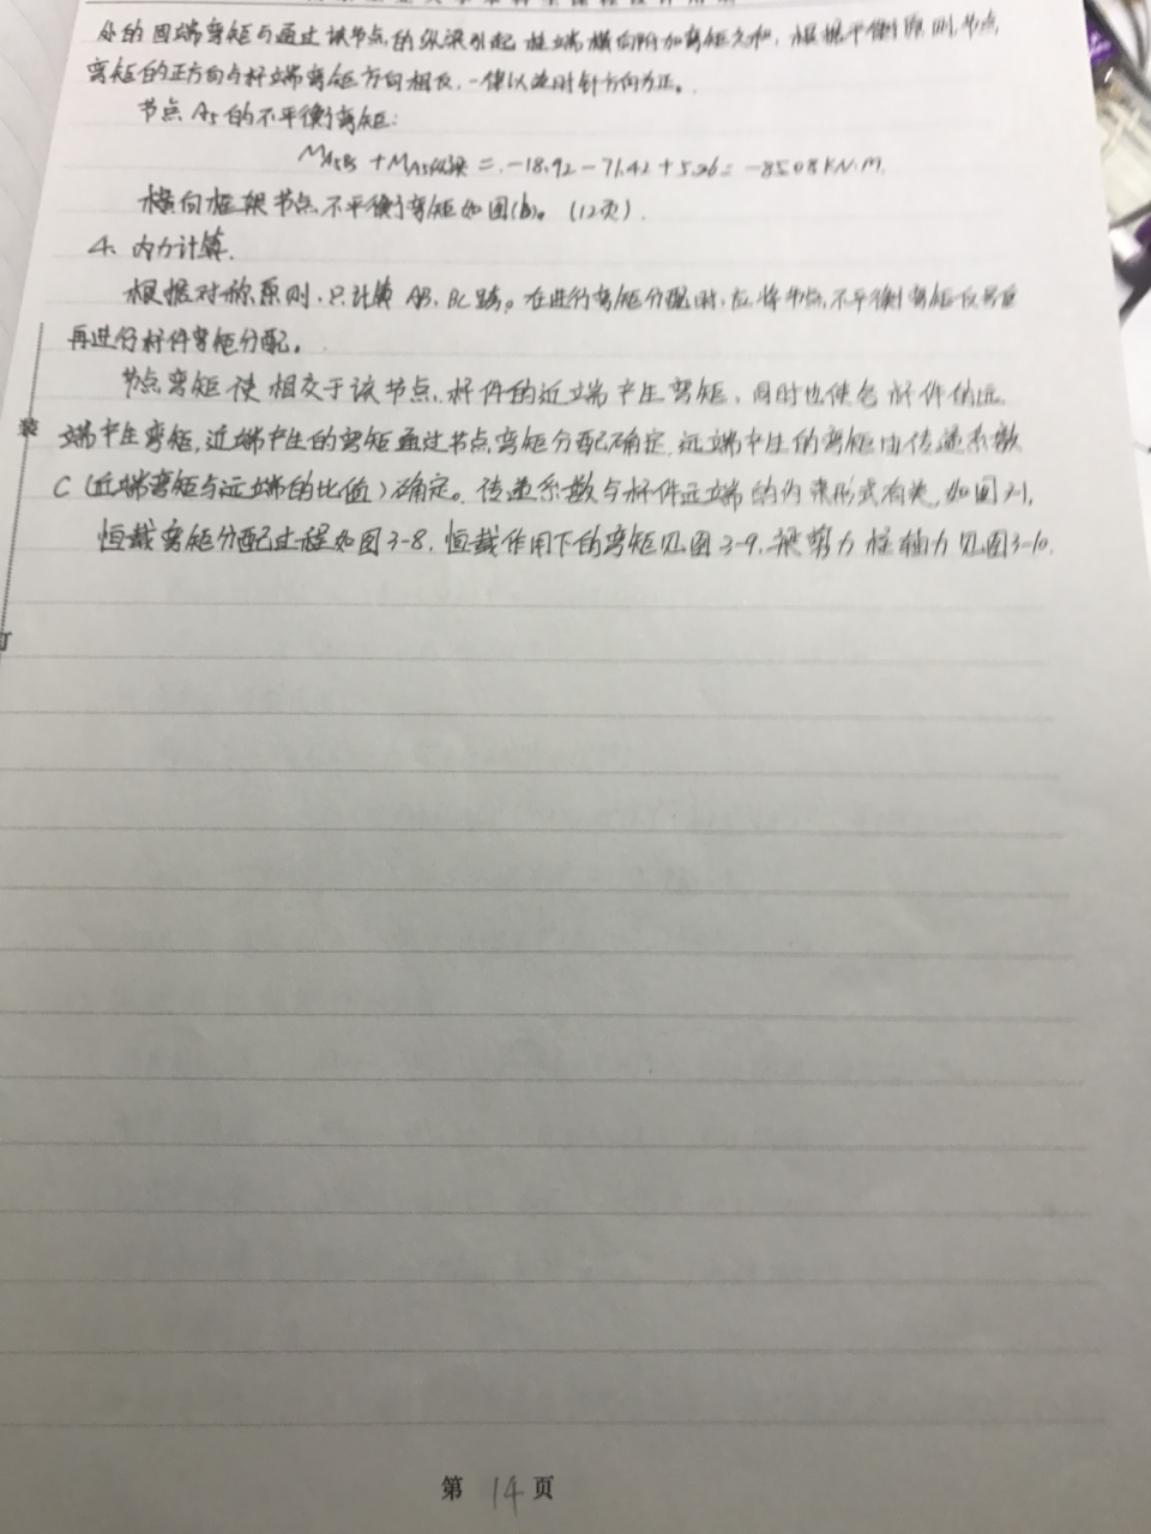 处的固端弯矩与通过该节点的纵梁引起柱端横向附加弯矩之和,根据平衡原则,节点
弯矩的正方向与杆端弯矩方向相反,一律以逆时针方向为正。
节点A5的不平衡弯矩:
MA5B5+MA5纵梁=-18.92-71.42+5.26=-85.08KN·M.
横向框架节点不平衡弯矩如图(b)。(12页).
4、内力计算.
根据对称原则,只计算AB、BC跨。在进行弯矩分配时,应将节点不平衡弯矩反号后
再进行杆件弯矩分配。
节点弯矩使相交于该节点杆件的近端产生弯矩,同时也使各杆件的远
端产生弯矩,近端产生的弯矩通过节点弯矩分配确定,远端产生的弯矩由传递系数
C(近端弯矩与远端的比值)确定。传递系数与杆件远端的约束形式有关,如图
恒载弯矩分配过程如图3-8,恒载作用下的弯矩见图3-9,梁剪力柱轴力见图3-10.
装
订
第14页